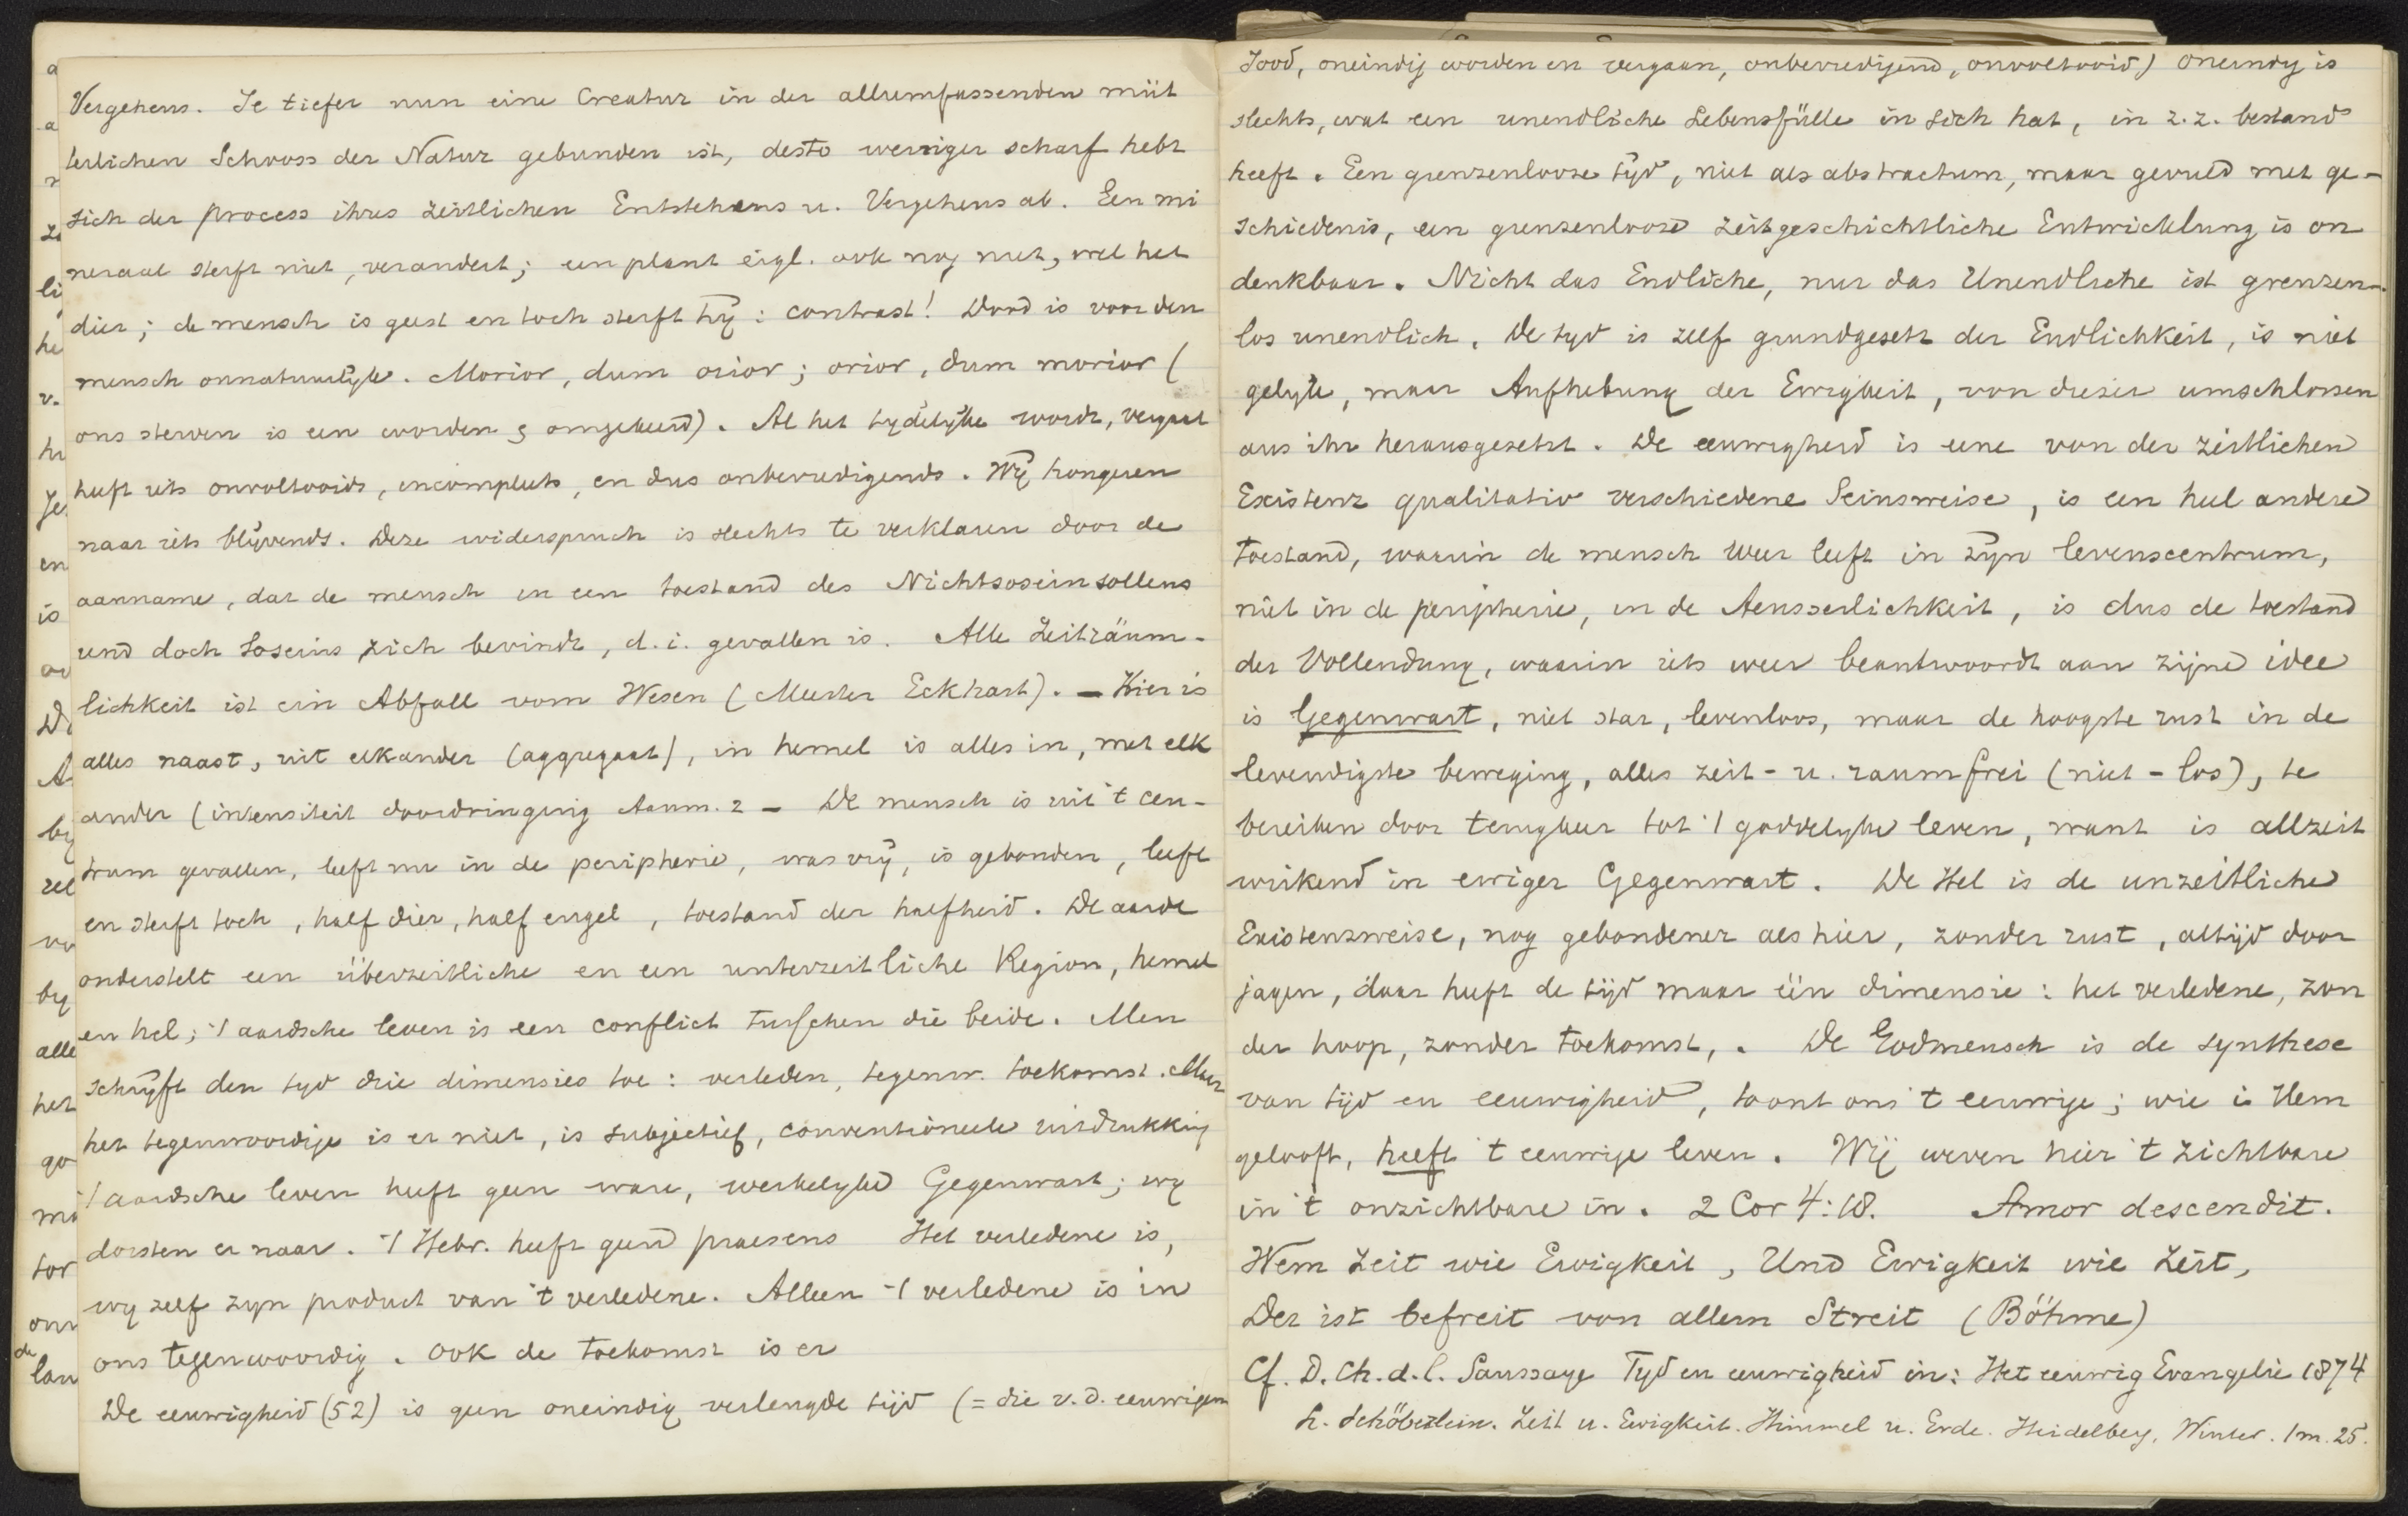 Vergehens. Je tiefer nun eine Creatur in der allumfassenden müt
terlichen Schooss der Natur gebunden ist, desto weniger scharf hebt
sich der process ihres zeitlichen Entstehens u. Vergehens ab. Een mi
neraal sterft niet, verandert; een plant eigl. ook nog niet, wel het
dier; de mensch is geest en toch sterft hij: contrast! Dood is voor den
mensch onnatuurlijk. Morior, dum orior; orior, dum morior (
ons sterven is een worden & omgekeerd). Al het tydelyke wordt, vergaat
heeft iets onvoltooids, incompleets, en dus onbevredigends. Wij hongeren
naar iets blijvends. Deze widerspruch is slechts te verklaren door de
aanname, dat de mensch in een toestand des Nichtsoseinsollens
und doch Soseins zich bevindt, d.i. gevallen is. Alle Zeiträum-
lichkeit ist ein Abfall vom Wesen (Meister Eckhart). – Hier is
alles naast, uit elkander (aggregaat), in hemel is alles in, met elk
ander (intensiteit doordringing Aanm. 2 – De mensch is uit 't cen-
trum gevallen, leeft nu in de peripherie, was vrij, is gebonden, leeft
en sterft toch, half dier, half engel, toestand der halfheid. De aarde
onderstelt een überzeitliche en een unterzeitliche Region, hemel
en hel; 't aardsche leven is een conflict tusschen die beide. Men
schrijft den tyd drie dimensies toe: verleden, tegenw. toekomst. Maar
het tegenwoordige is er niet, is subjectief, conventioneele uitdrukking
't aardsche leven heeft geen ware, werkelyke Gegenwart; wy
dorsten er naar. 't Hebr. heeft geen praesens Het verledene is,
wy zelf zyn product van 't verledene. Alleen 't verledene is in
ons tegenwoordig. Ook de toekomst is er
De eeuwigheid (52) is geen oneindig verlengde tijd (= die v. d. eeuwigen
Jood, oneindig worden en vergaan, onbevredigend, onvoltooid) oneindig is
slechts, wat een unendliche Lebensfülle in sich hat, in z.z. bestand
heeft. Een grenzenlooze tijd, niet als abstractum, maar gevuld met ge-
schiedenis, een grenzenlooze zeitgeschichtliche Entwicklung is on
denkbaar. Nicht das Endliche, nur das Unendliche ist grenzen-
los unendlich. De tyd is zelf grundgesetz der Endlichkeit, is niet
gelyk, maar Aufhebung der Ewigkeit, von dieser umschlossen
aus ihr herausgesetzt. De eeuwigheid is eine von der zeitlichen
Existenz qualitativ verschiedene Seinsweise, is een heel andere
toestand, waarin de mensch weer leeft in zijn levenscentrum,
niet in de peripherie, in de Aeusserlichkeit, is dus de toestand
der Vollendung, waarin iets weer beantwoordt aan zijne idee
is Gegenwart, niet star, levenloos, maar de hoogste rust in de
levendigste beweging, alles zeit- u. raumfrei (niet -los), te
bereiken door terugkeer tot 't goddelyke leven, want is allzeit
wirkend in ewiger Gegenwart. De Hel is de unzeitliche
Existenzweise, nog gebondener als hier, zonder rust, altijd door
jagen, daar heeft de tijd maar één dimensie: het verledene, zon
der hoop, zonder toekomst,. De Godmensch is de synthese
van tijd en eeuwigheid, toont ons 't eeuwige; wie i Hem
gelooft, heeft 't eeuwige leven. Wij weven hier 't zichtbare
in 't onzichtbare in. 2 Cor 4:18. Amor descendit.
Wem Zeit wie Ewigkeit, Und Ewigkeit wie Zeit,
Der ist befreit von allem Streit (Böhme)
Cf. D. Ch. d. l. Saussaye Tyd en eeuwigheid in: Het eeuwig Evangelie 1874
L. Schöberlein. Zeit u. Ewigkeit. Himmel u. Erde. Heidelberg, Winter. 1 m. 25.